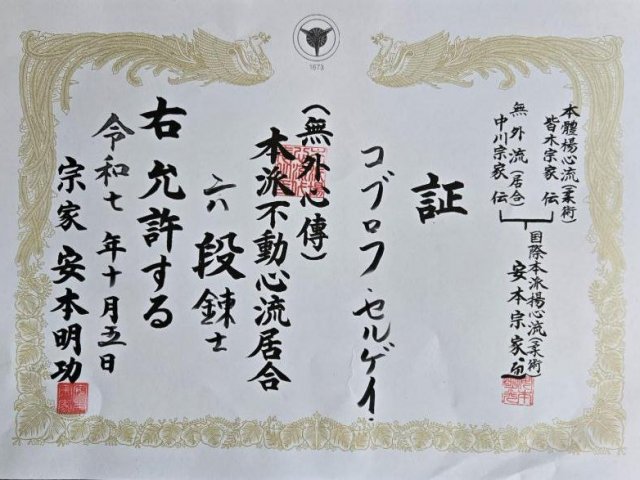 1673
本體楊心流(柔術)
皆木宗家 伝
無外流(居合)
中川宗家 伝
国際本派揚心流(柔術)
安本宗家
証
コブロフ・セルゲイ
(無外心傳)
本派不動心流居合
六段 錬士
右允許する
令和七年十月五日
宗家 安本明功